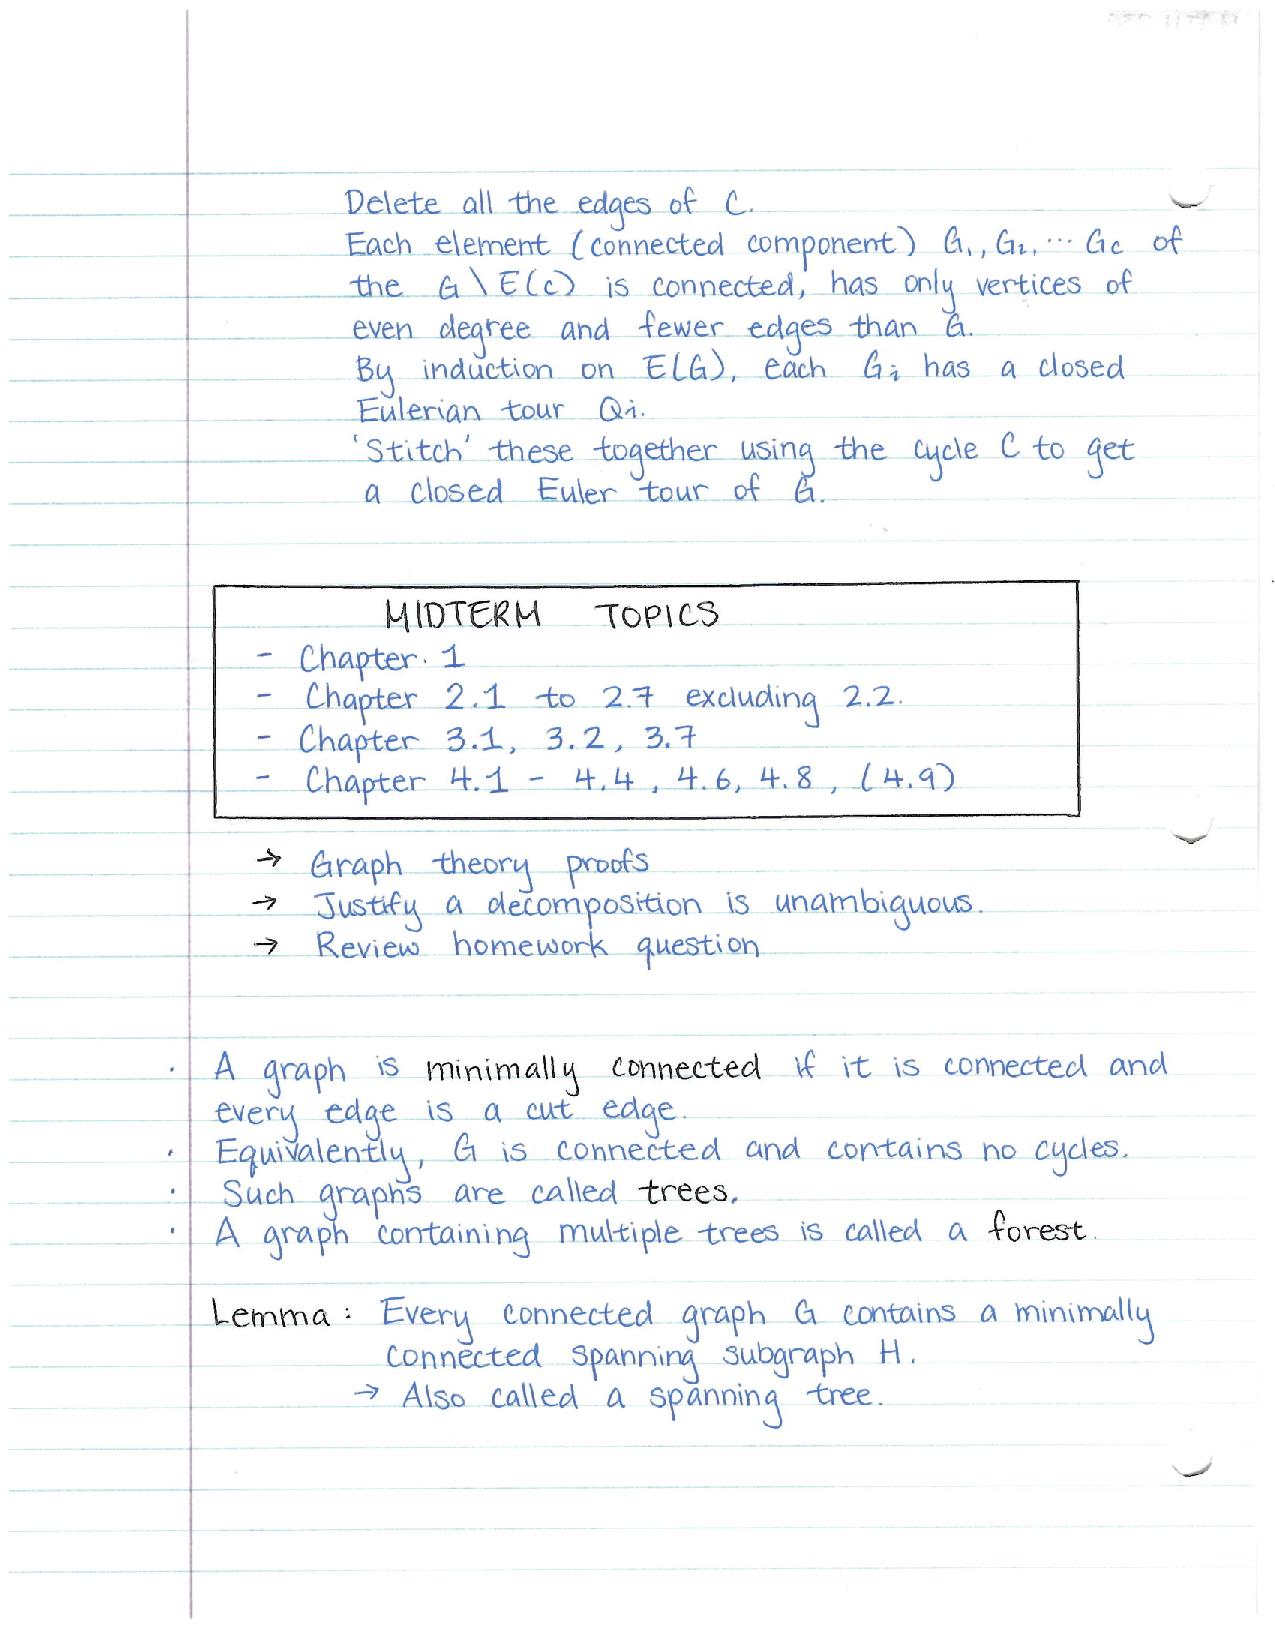 Delete all the edges of C.
Each element (connected component) G₁, G₂, ... Gc of
the G \ E(c) is connected, has only vertices of
even degree and fewer edges than G.
By induction on E(G), each Gi has a closed
Eulerian tour Qi.
'Stitch' these together using the cycle C to get
a closed Euler tour of G.
MIDTERM TOPICS
- Chapter. 1
- Chapter 2.1 to 2.7 excluding 2.2.
- Chapter 3.1, 3.2, 3.7
- Chapter 4.1 - 4.4, 4.6, 4.8, (4.9)
→ Graph theory proofs
→ Justify a decomposition is unambiguous.
→ Review homework question
· A graph is minimally connected if it is connected and
every edge is a cut edge.
· Equivalently, G is connected and contains no cycles.
· Such graphs are called trees.
· A graph containing multiple trees is called a forest.
Lemma: Every connected graph G contains a minimally
connected spanning subgraph H.
→ Also called a spanning tree.